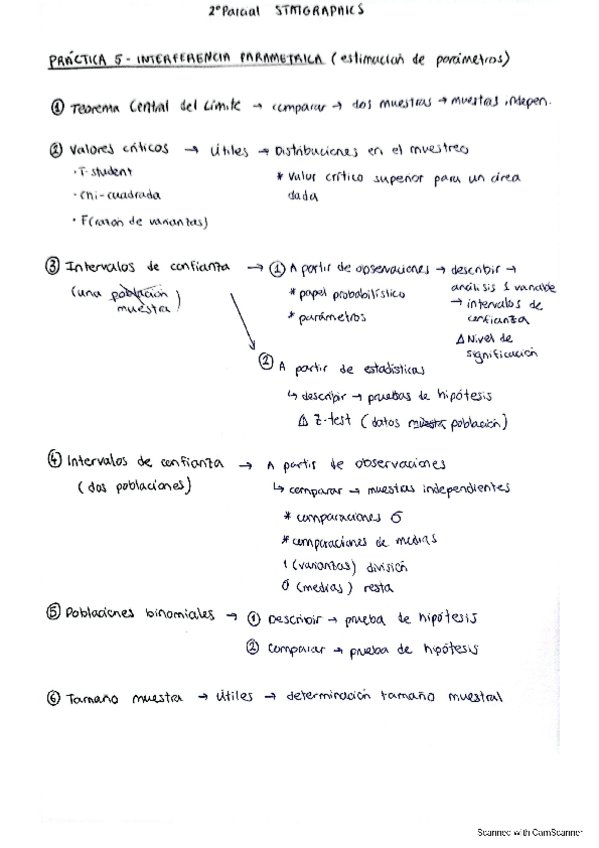 2º Parcial STATGRAPHICS
PRÁCTICA 5 - INTERFERENCIA PARAMETRICA (estimación de parámetros)
① Teorema Central del Límite → comparar → dos muestras → muestras indepen.
② Valores críticos → útiles → Distribuciones en el muestreo
· T-student * Valor crítico superior para un área
· chi-cuadrada dada
· F(razón de varianzas)
③ Intervalos de confianza → ① A partir de observaciones → describir →
(una población análisis 1 variable
muestra) * papel probabilístico → intervalos de
* parámetros confianza
△ Nivel de
significación
② A partir de estadísticas
↳ describir → pruebas de hipótesis
△ Z-test (datos muestra población)
④ Intervalos de confianza → A partir de observaciones
(dos poblaciones) ↳ comparar → muestras independientes
* comparaciones σ
* comparaciones de medias
1 (varianzas) división
0 (medias) resta
⑤ Poblaciones binomiales → ① Describir → prueba de hipótesis
② comparar → prueba de hipótesis
⑥ Tamaño muestra → útiles → determinación tamaño muestral
Scanned with CamScanner